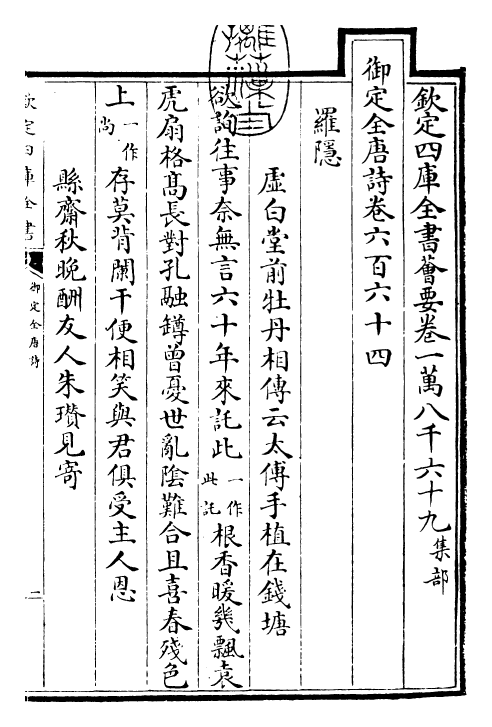 欽定四庫全書薈要卷一萬八千六十九集部
御定全唐詩卷六百六十四
羅隱
虛白堂前牡丹相傳云太傅手植在錢塘
欲詢往事奈無言六十年來託此一作此託根香暖幾飄袁
虎扇格高長對孔融罇曾憂世亂陰難合且喜春殘色
上一作尚存莫背闌干便相笑與君俱受主人恩
縣齋秋晚酬友人朱瓚見寄
欽定四庫全書
御定全唐詩
二